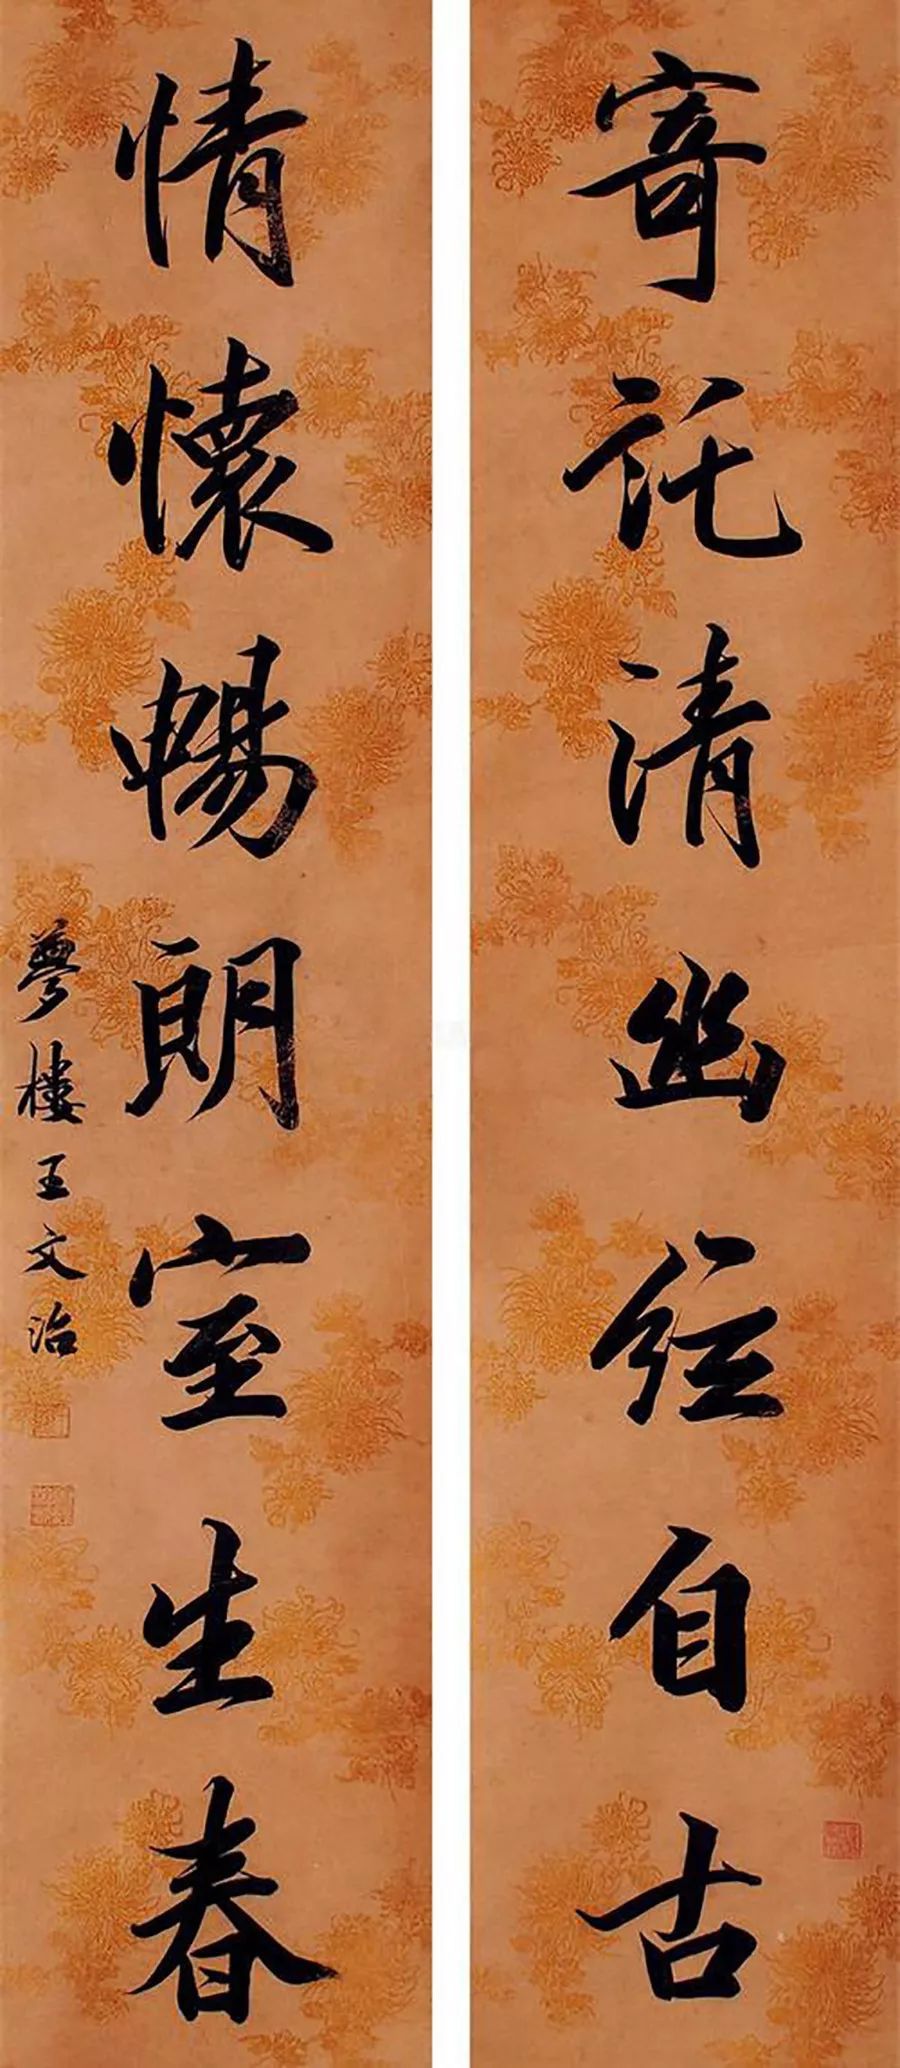 寄託清幽絃自古
情懷暢朗室生春
夢樓王文治